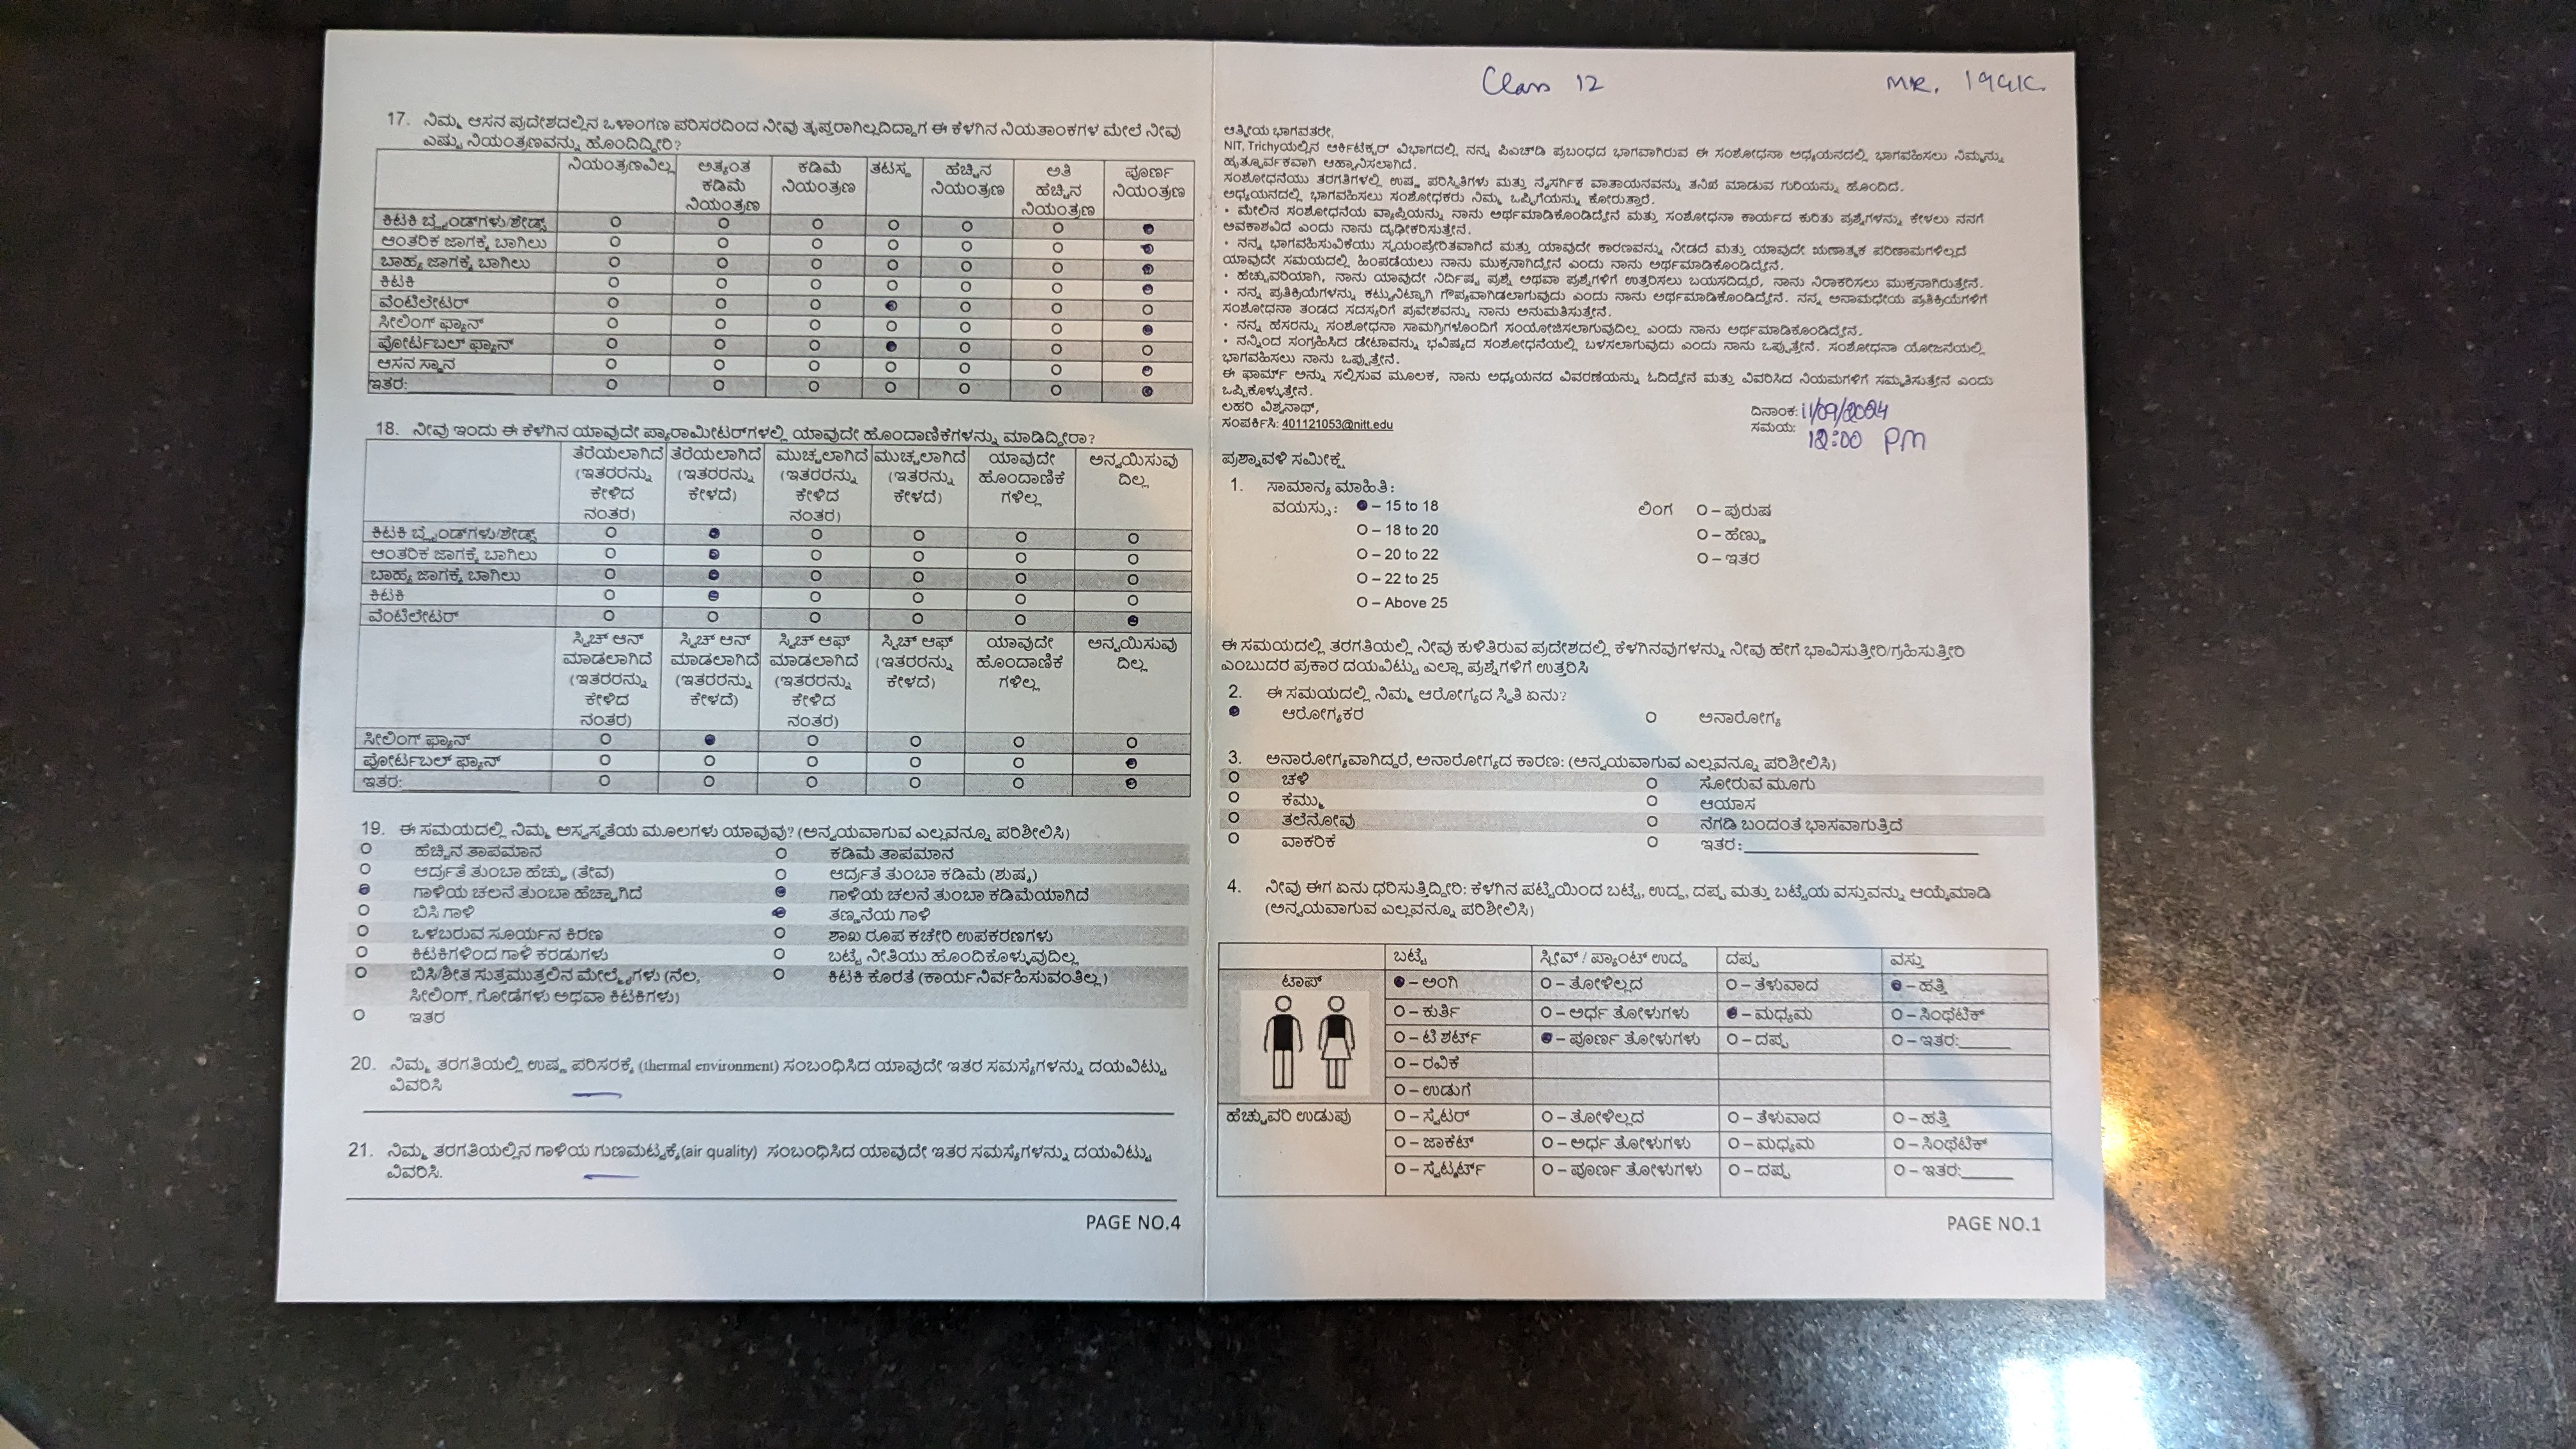 17. ನಿಮ್ಮ ಆಸನ ಪ್ರದೇಶದಲ್ಲಿನ ಒಳಾಂಗಣ ಪರಿಸರದಿಂದ ನೀವು ತೃಪ್ತರಾಗಿಲ್ಲದಿದ್ದಾಗ ಈ ಕೆಳಗಿನ ನಿಯತಾಂಕಗಳ ಮೇಲೆ ನೀವು
ಎಷ್ಟು ನಿಯಂತ್ರಣವನ್ನು ಹೊಂದಿದ್ದೀರಿ?
ನಿಯಂತ್ರಣವಿಲ್ಲ ಅತ್ಯಂತ ಕಡಿಮೆ ನಿಯಂತ್ರಣ ಕಡಿಮೆ ನಿಯಂತ್ರಣ ತಟಸ್ಥ ಹೆಚ್ಚಿನ ನಿಯಂತ್ರಣ ಅತಿ ಹೆಚ್ಚಿನ ನಿಯಂತ್ರಣ ಪೂರ್ಣ ನಿಯಂತ್ರಣ
ಕಿಟಕಿ ಬ್ಲೈಂಡ್‌ಗಳು/ಶೇಡ್ಸ್
ಆಂತರಿಕ ಜಾಗಕ್ಕೆ ಬಾಗಿಲು
ಬಾಹ್ಯ ಜಾಗಕ್ಕೆ ಬಾಗಿಲು
ಕಿಟಕಿ
ವೆಂಟಿಲೇಟರ್
ಸೀಲಿಂಗ್ ಫ್ಯಾನ್
ಪೋರ್ಟಬಲ್ ಫ್ಯಾನ್
ಆಸನ ಸ್ಥಾನ
ಇತರ:
18. ನೀವು ಇಂದು ಈ ಕೆಳಗಿನ ಯಾವುದೇ ಪ್ಯಾರಾಮೀಟರ್‌ಗಳಲ್ಲಿ ಯಾವುದೇ ಹೊಂದಾಣಿಕೆಗಳನ್ನು ಮಾಡಿದ್ದೀರಾ?
ತೆರೆಯಲಾಗಿದೆ (ಇತರರನ್ನು ಕೇಳಿದ ನಂತರ) ತೆರೆಯಲಾಗಿದೆ (ಇತರರನ್ನು ಕೇಳದೆ) ಮುಚ್ಚಲಾಗಿದೆ (ಇತರರನ್ನು ಕೇಳಿದ ನಂತರ) ಮುಚ್ಚಲಾಗಿದೆ (ಇತರನ್ನು ಕೇಳದೆ) ಯಾವುದೇ ಹೊಂದಾಣಿಕೆ ಗಳಿಲ್ಲ ಅನ್ವಯಿಸುವುದಿಲ್ಲ
ಕಿಟಕಿ ಬ್ಲೈಂಡ್‌ಗಳು/ಶೇಡ್ಸ್
ಆಂತರಿಕ ಜಾಗಕ್ಕೆ ಬಾಗಿಲು
ಬಾಹ್ಯ ಜಾಗಕ್ಕೆ ಬಾಗಿಲು
ಕಿಟಕಿ
ವೆಂಟಿಲೇಟರ್
ಸ್ವಿಚ್ ಆನ್ ಮಾಡಲಾಗಿದೆ (ಇತರರನ್ನು ಕೇಳಿದ ನಂತರ) ಸ್ವಿಚ್ ಆನ್ ಮಾಡಲಾಗಿದೆ (ಇತರರನ್ನು ಕೇಳದೆ) ಸ್ವಿಚ್ ಆಫ್ ಮಾಡಲಾಗಿದೆ (ಇತರರನ್ನು ಕೇಳಿದ ನಂತರ) ಸ್ವಿಚ್ ಆಫ್ (ಇತರರನ್ನು ಕೇಳದೆ) ಯಾವುದೇ ಹೊಂದಾಣಿಕೆ ಗಳಿಲ್ಲ ಅನ್ವಯಿಸುವುದಿಲ್ಲ
ಸೀಲಿಂಗ್ ಫ್ಯಾನ್
ಪೋರ್ಟಬಲ್ ಫ್ಯಾನ್
ಇತರ:
19. ಈ ಸಮಯದಲ್ಲಿ ನಿಮ್ಮ ಅಸ್ವಸ್ಥತೆಯ ಮೂಲಗಳು ಯಾವುವು? (ಅನ್ವಯವಾಗುವ ಎಲ್ಲವನ್ನೂ ಪರಿಶೀಲಿಸಿ)
ಹೆಚ್ಚಿನ ತಾಪಮಾನ ಕಡಿಮೆ ತಾಪಮಾನ
ಆರ್ದ್ರತೆ ತುಂಬಾ ಹೆಚ್ಚು (ತೇವ) ಆರ್ದ್ರತೆ ತುಂಬಾ ಕಡಿಮೆ (ಶುಷ್ಕ)
ಗಾಳಿಯ ಚಲನೆ ತುಂಬಾ ಹೆಚ್ಚಾಗಿದೆ ಗಾಳಿಯ ಚಲನೆ ತುಂಬಾ ಕಡಿಮೆಯಾಗಿದೆ
ಬಿಸಿ ಗಾಳಿ ತಣ್ಣನೆಯ ಗಾಳಿ
ಒಳಬರುವ ಸೂರ್ಯನ ಕಿರಣ ಶಾಖ ರೂಪ ಕಚೇರಿ ಉಪಕರಣಗಳು
ಕಿಟಕಿಗಳಿಂದ ಗಾಳಿ ಕರಡುಗಳು ಬಟ್ಟೆ ನೀತಿಯು ಹೊಂದಿಕೊಳ್ಳುವುದಿಲ್ಲ
ಬಿಸಿ/ಶೀತ ಸುತ್ತಮುತ್ತಲಿನ ಮೇಲ್ಮೈಗಳು (ನೆಲ, ಕಿಟಕಿ ಕೊರತೆ (ಕಾರ್ಯನಿರ್ವಹಿಸುವಂತಿಲ್ಲ)
ಸೀಲಿಂಗ್, ಗೋಡೆಗಳು ಅಥವಾ ಕಿಟಕಿಗಳು)
ಇತರ
20. ನಿಮ್ಮ ತರಗತಿಯಲ್ಲಿ ಉಷ್ಣ ಪರಿಸರಕ್ಕೆ (thermal environment) ಸಂಬಂಧಿಸಿದ ಯಾವುದೇ ಇತರ ಸಮಸ್ಯೆಗಳನ್ನು ದಯವಿಟ್ಟು
ವಿವರಿಸಿ
21. ನಿಮ್ಮ ತರಗತಿಯಲ್ಲಿನ ಗಾಳಿಯ ಗುಣಮಟ್ಟಕ್ಕೆ(air quality) ಸಂಬಂಧಿಸಿದ ಯಾವುದೇ ಇತರ ಸಮಸ್ಯೆಗಳನ್ನು ದಯವಿಟ್ಟು
ವಿವರಿಸಿ.
PAGE NO.4
Class 12
ಆತ್ಮೀಯ ಭಾಗವತರೇ,
NIT, Trichyಯಲ್ಲಿನ ಆರ್ಕಿಟೆಕ್ಚರ್ ವಿಭಾಗದಲ್ಲಿ ನನ್ನ ಪಿಎಚ್‌ಡಿ ಪ್ರಬಂಧದ ಭಾಗವಾಗಿರುವ ಈ ಸಂಶೋಧನಾ ಅಧ್ಯಯನದಲ್ಲಿ ಭಾಗವಹಿಸಲು ನಿಮ್ಮನ್ನು
ಹೃತ್ಪೂರ್ವಕವಾಗಿ ಆಹ್ವಾನಿಸಲಾಗಿದೆ.
ಸಂಶೋಧನೆಯು ತರಗತಿಗಳಲ್ಲಿ ಉಷ್ಣ ಪರಿಸ್ಥಿತಿಗಳು ಮತ್ತು ನೈಸರ್ಗಿಕ ವಾತಾಯನವನ್ನು ತನಿಖೆ ಮಾಡುವ ಗುರಿಯನ್ನು ಹೊಂದಿದೆ.
ಅಧ್ಯಯನದಲ್ಲಿ ಭಾಗವಹಿಸಲು ಸಂಶೋಧಕರು ನಿಮ್ಮ ಒಪ್ಪಿಗೆಯನ್ನು ಕೋರುತ್ತಾರೆ.
• ಮೇಲಿನ ಸಂಶೋಧನೆಯ ವ್ಯಾಪ್ತಿಯನ್ನು ನಾನು ಅರ್ಥಮಾಡಿಕೊಂಡಿದ್ದೇನೆ ಮತ್ತು ಸಂಶೋಧನಾ ಕಾರ್ಯದ ಕುರಿತು ಪ್ರಶ್ನೆಗಳನ್ನು ಕೇಳಲು ನನಗೆ
ಅವಕಾಶವಿದೆ ಎಂದು ನಾನು ದೃಢೀಕರಿಸುತ್ತೇನೆ.
• ನನ್ನ ಭಾಗವಹಿಸುವಿಕೆಯು ಸ್ವಯಂಪ್ರೇರಿತವಾಗಿದೆ ಮತ್ತು ಯಾವುದೇ ಕಾರಣವನ್ನು ನೀಡದೆ ಮತ್ತು ಯಾವುದೇ ಋಣಾತ್ಮಕ ಪರಿಣಾಮಗಳಿಲ್ಲದೆ
ಯಾವುದೇ ಸಮಯದಲ್ಲಿ ಹಿಂಪಡೆಯಲು ನಾನು ಮುಕ್ತನಾಗಿದ್ದೇನೆ ಎಂದು ನಾನು ಅರ್ಥಮಾಡಿಕೊಂಡಿದ್ದೇನೆ.
• ಹೆಚ್ಚುವರಿಯಾಗಿ, ನಾನು ಯಾವುದೇ ನಿರ್ದಿಷ್ಟ ಪ್ರಶ್ನೆ ಅಥವಾ ಪ್ರಶ್ನೆಗಳಿಗೆ ಉತ್ತರಿಸಲು ಬಯಸದಿದ್ದರೆ, ನಾನು ನಿರಾಕರಿಸಲು ಮುಕ್ತನಾಗಿರುತ್ತೇನೆ.
• ನನ್ನ ಪ್ರತಿಕ್ರಿಯೆಗಳನ್ನು ಕಟ್ಟುನಿಟ್ಟಾಗಿ ಗೌಪ್ಯವಾಗಿಡಲಾಗುವುದು ಎಂದು ನಾನು ಅರ್ಥಮಾಡಿಕೊಂಡಿದ್ದೇನೆ. ನನ್ನ ಅನಾಮಧೇಯ ಪ್ರತಿಕ್ರಿಯೆಗಳಿಗೆ
ಸಂಶೋಧನಾ ತಂಡದ ಸದಸ್ಯರಿಗೆ ಪ್ರವೇಶವನ್ನು ನಾನು ಅನುಮತಿಸುತ್ತೇನೆ.
• ನನ್ನ ಹೆಸರನ್ನು ಸಂಶೋಧನಾ ಸಾಮಗ್ರಿಗಳೊಂದಿಗೆ ಸಂಯೋಜಿಸಲಾಗುವುದಿಲ್ಲ ಎಂದು ನಾನು ಅರ್ಥಮಾಡಿಕೊಂಡಿದ್ದೇನೆ.
• ನನ್ನಿಂದ ಸಂಗ್ರಹಿಸಿದ ಡೇಟಾವನ್ನು ಭವಿಷ್ಯದ ಸಂಶೋಧನೆಯಲ್ಲಿ ಬಳಸಲಾಗುವುದು ಎಂದು ನಾನು ಒಪ್ಪುತ್ತೇನೆ. ಸಂಶೋಧನಾ ಯೋಜನೆಯಲ್ಲಿ
ಭಾಗವಹಿಸಲು ನಾನು ಒಪ್ಪುತ್ತೇನೆ.
ಈ ಫಾರ್ಮ್ ಅನ್ನು ಸಲ್ಲಿಸುವ ಮೂಲಕ, ನಾನು ಅಧ್ಯಯನದ ವಿವರಣೆಯನ್ನು ಓದಿದ್ದೇನೆ ಮತ್ತು ವಿವರಿಸಿದ ನಿಯಮಗಳಿಗೆ ಸಮ್ಮತಿಸುತ್ತೇನೆ ಎಂದು
ಒಪ್ಪಿಕೊಳ್ಳುತ್ತೇನೆ.
ಲಹರಿ ವಿಶ್ವನಾಥ್,
ಸಂಪರ್ಕಿಸಿ: 401121053@nitt.edu
ದಿನಾಂಕ: 11/09/2024
ಸಮಯ: 12:00 PM
ಪ್ರಶ್ನಾವಳಿ ಸಮೀಕ್ಷೆ
1. ಸಾಮಾನ್ಯ ಮಾಹಿತಿ:
ವಯಸ್ಸು: – 15 to 18 ಲಿಂಗ O – ಪುರುಷ
O – 18 to 20 O – ಹೆಣ್ಣು
O – 20 to 22 O – ಇತರ
O – 22 to 25
O – Above 25
ಈ ಸಮಯದಲ್ಲಿ ತರಗತಿಯಲ್ಲಿ ನೀವು ಕುಳಿತಿರುವ ಪ್ರದೇಶದಲ್ಲಿ ಕೆಳಗಿನವುಗಳನ್ನು ನೀವು ಹೇಗೆ ಭಾವಿಸುತ್ತೀರಿ/ಗ್ರಹಿಸುತ್ತೀರಿ
ಎಂಬುದರ ಪ್ರಕಾರ ದಯವಿಟ್ಟು ಎಲ್ಲಾ ಪ್ರಶ್ನೆಗಳಿಗೆ ಉತ್ತರಿಸಿ
2. ಈ ಸಮಯದಲ್ಲಿ ನಿಮ್ಮ ಆರೋಗ್ಯದ ಸ್ಥಿತಿ ಏನು?
ಆರೋಗ್ಯಕರ ಅನಾರೋಗ್ಯ
3. ಅನಾರೋಗ್ಯವಾಗಿದ್ದರೆ, ಅನಾರೋಗ್ಯದ ಕಾರಣ: (ಅನ್ವಯವಾಗುವ ಎಲ್ಲವನ್ನೂ ಪರಿಶೀಲಿಸಿ)
ಚಳಿ ಸೋರುವ ಮೂಗು
ಕೆಮ್ಮು ಆಯಾಸ
ತಲೆನೋವು ನೆಗಡಿ ಬಂದಂತೆ ಭಾಸವಾಗುತ್ತಿದೆ
ವಾಕರಿಕೆ ಇತರ:
4. ನೀವು ಈಗ ಏನು ಧರಿಸುತ್ತಿದ್ದೀರಿ: ಕೆಳಗಿನ ಪಟ್ಟಿಯಿಂದ ಬಟ್ಟೆ, ಉದ್ದ, ದಪ್ಪ ಮತ್ತು ಬಟ್ಟೆಯ ವಸ್ತುವನ್ನು ಆಯ್ಕೆಮಾಡಿ
(ಅನ್ವಯವಾಗುವ ಎಲ್ಲವನ್ನೂ ಪರಿಶೀಲಿಸಿ)
ಬಟ್ಟೆ ಸ್ಲೀವ್ / ಪ್ಯಾಂಟ್ ಉದ್ದ ದಪ್ಪ ವಸ್ತು
ಟಾಪ್ – ಅಂಗಿ O – ತೋಳಿಲ್ಲದ O – ತೆಳುವಾದ – ಹತ್ತಿ
O – ಕುರ್ತಿ O – ಅರ್ಧ ತೋಳುಗಳು – ಮಧ್ಯಮ O – ಸಿಂಥೆಟಿಕ್
O – ಟಿ ಶರ್ಟ್ – ಪೂರ್ಣ ತೋಳುಗಳು O – ದಪ್ಪ O – ಇತರ:
O – ರವಿಕೆ
O – ಉಡುಗೆ
ಹೆಚ್ಚುವರಿ ಉಡುಪು O – ಸ್ವೆಟರ್ O – ತೋಳಿಲ್ಲದ O – ತೆಳುವಾದ O – ಹತ್ತಿ
O – ಜಾಕೆಟ್ O – ಅರ್ಧ ತೋಳುಗಳು O – ಮಧ್ಯಮ O – ಸಿಂಥೆಟಿಕ್
O – ಸ್ವೆಟ್ಶರ್ಟ್ O – ಪೂರ್ಣ ತೋಳುಗಳು O – ದಪ್ಪ O – ಇತರ:
PAGE NO.1